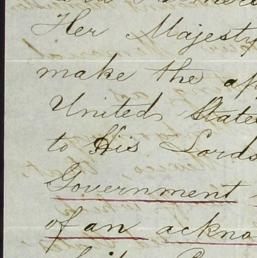 Her Majesty
make the ap
United States
to His Lords
Government
of an ackno